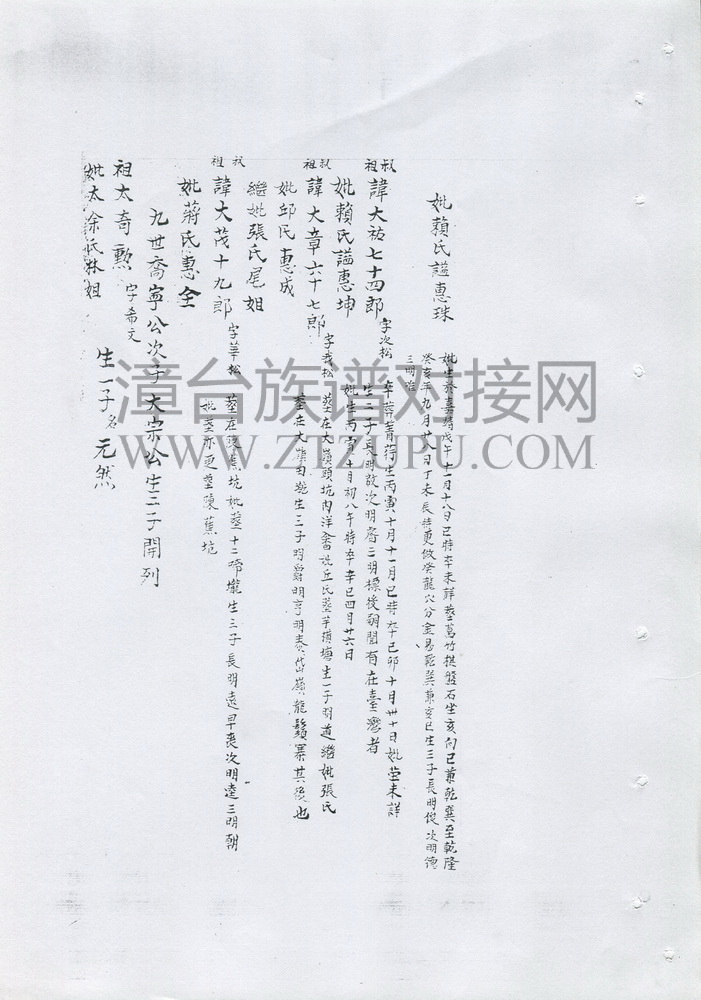 妣賴氏謚惠珠
妣生於嘉靖戊午十一月十八日巳時卒未詳塟葛竹拱盤石坐亥向巳兼乾巽至乾隆
癸亥年九月廿八日丁未辰時更做癸龍穴分金乾巽兼亥巳生三子長明俊次明德
三明
叔祖諱大祐七十四郎
字次松
生丙寅十月十一月巳時卒己卯十月卅十日妣塋未詳
生三子長明敬次明睿三明標後朝聞有在臺灣者
妣賴氏謚惠坤
妣生丙寅十月初八午時卒辛巳四月廿六日
叔祖諱大章六十七郎
字我松
塟在大嶺頭坑內洋畬妣丘氏塟埔生一子明道繼妣張氏
塟在大嶺生三子明明亨明泰嶺龍鬚寨其後也
妣邱氏惠成
繼妣張氏尾姐
叔祖諱大茂十九郎
字華松
塟在陳蕉坑妣塟十二壠生三子長明遠早喪次明達三明朝
妣塟亦更塟陳蕉坑
妣蔣氏惠全
九世喬寧公次子大宗公生三子開列
祖太奇勲
字希文
生一子名元然
妣太涂氏林姐
漳台族谱对接网
WWW.ZTZUPU.COM